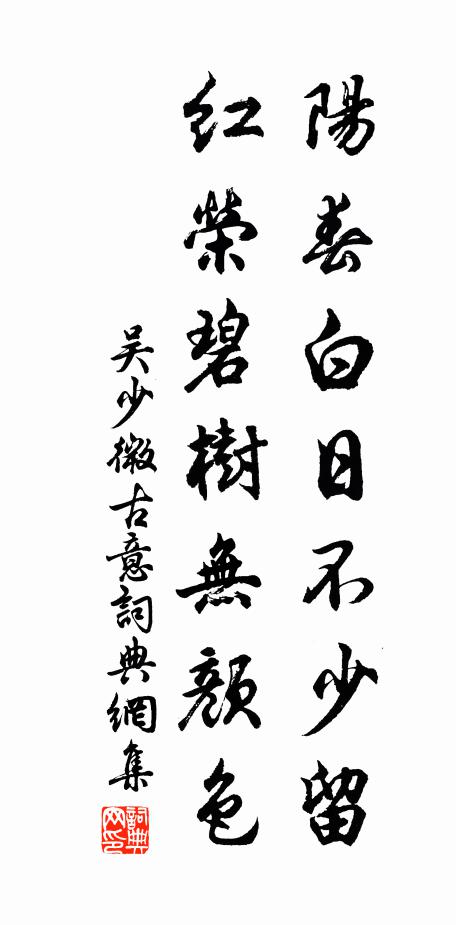 陽春白日不少留
紅榮碧樹無顏色
吴少微古意詞典網集
詞典
网印